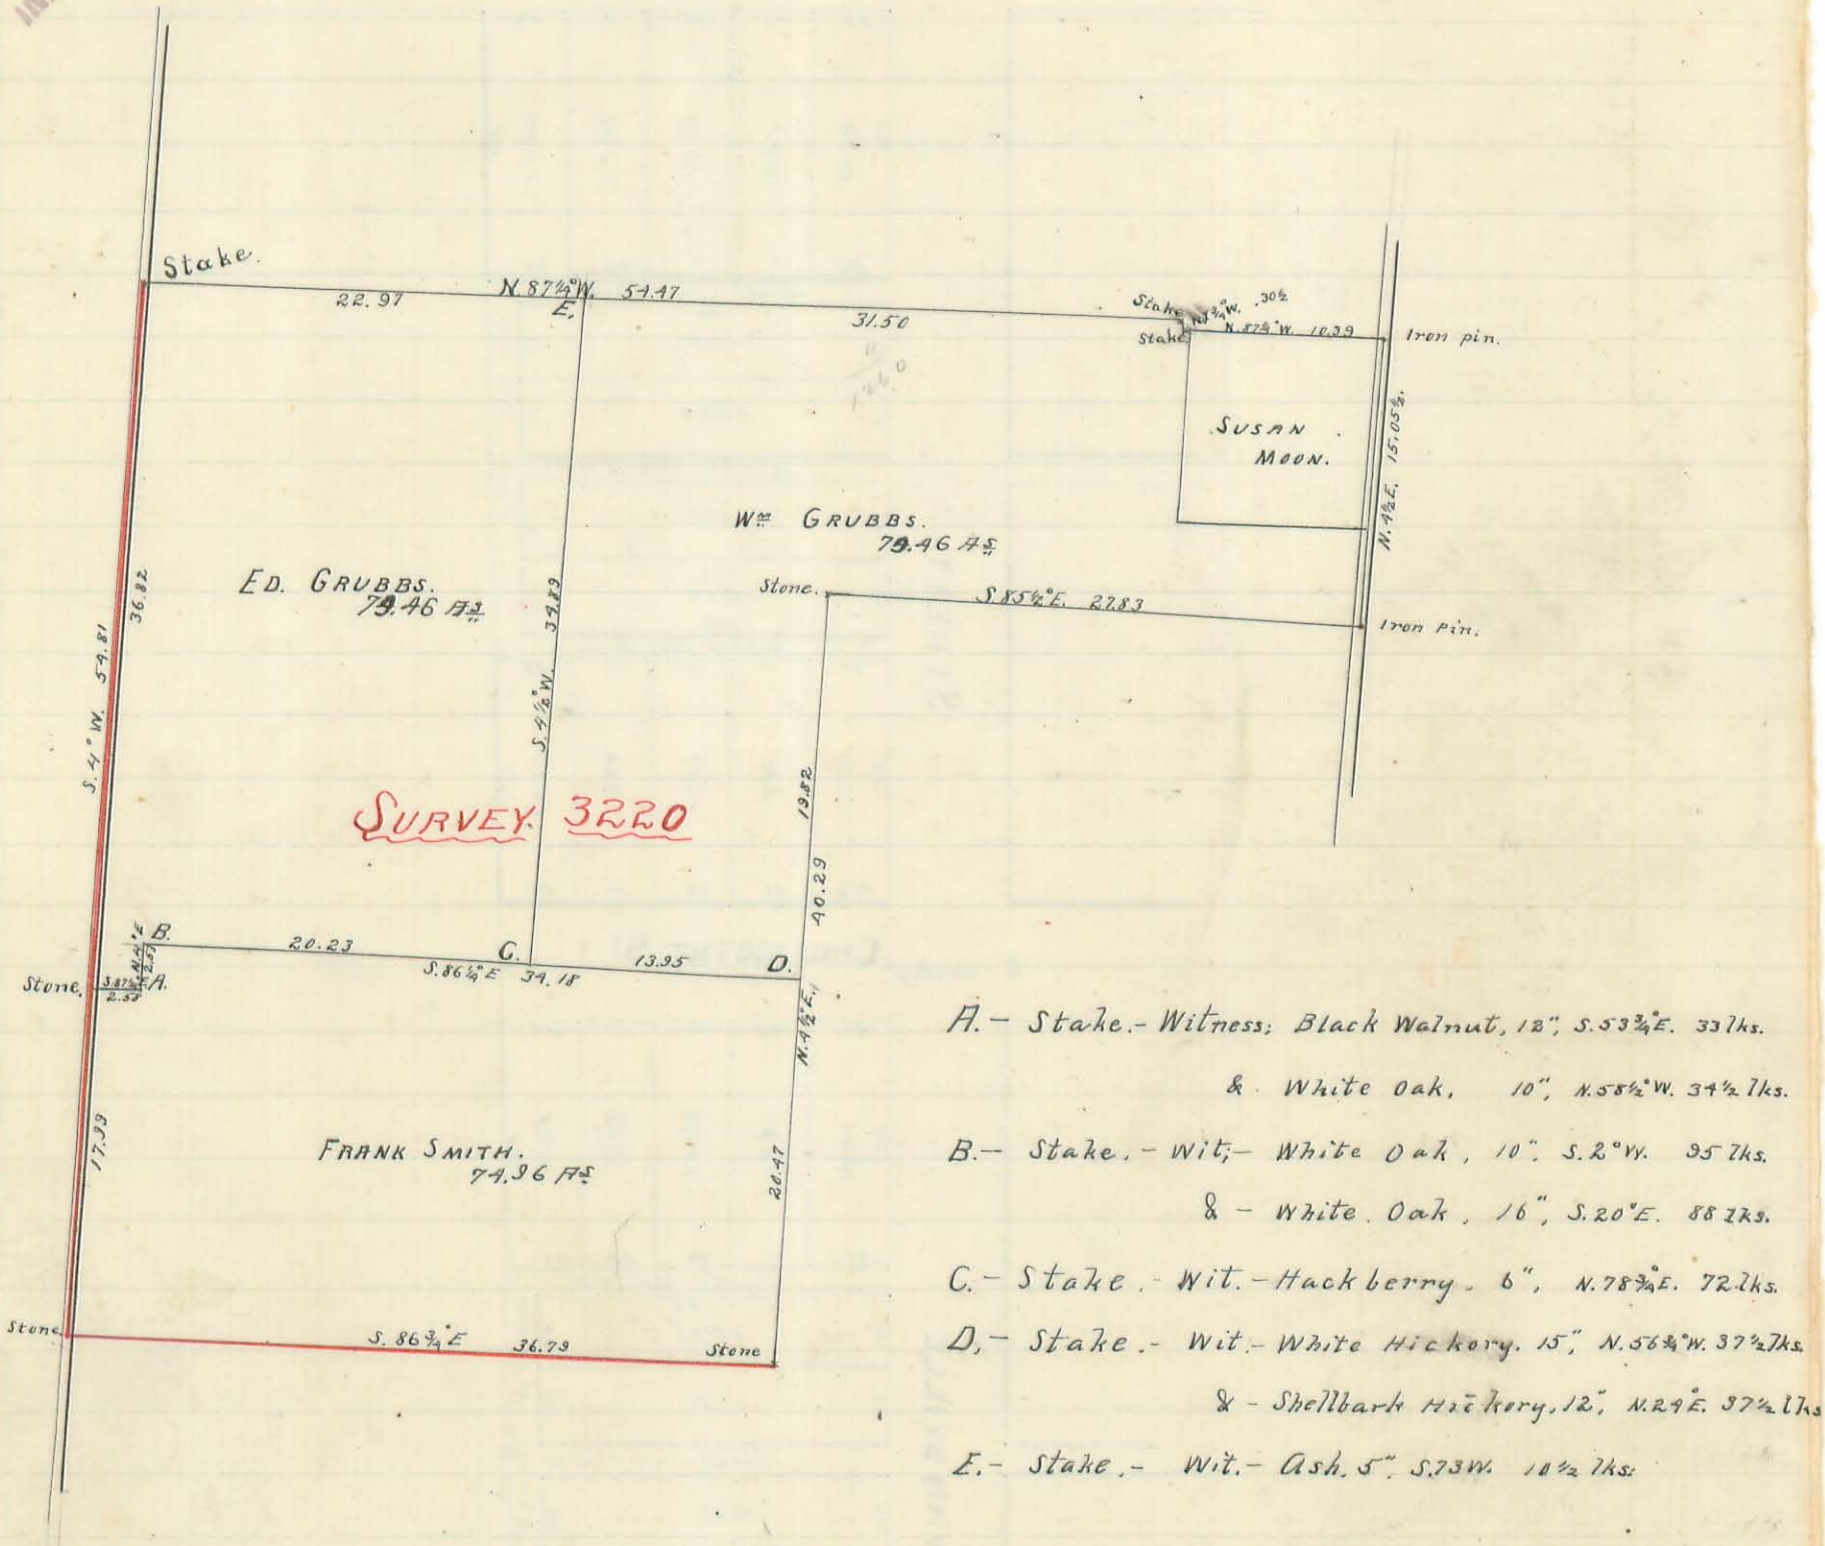 Stake.
22.97 N.87¼°W. 54.47
E.
31.50
Stake
.30½
Stake
N.87¾°W. 10.39 Iron pin.
SUSAN
MOON.
N.4½E. 15.05½.
Wm GRUBBS.
79.46 As
ED. GRUBBS.
79.46 As
36.82
S.4°W. 54.81
S.4½°W. 34.89
Stone. S.85½°E. 27.83
Iron Pin.
SURVEY. 3220
19.82
40.29
N.4°E
2.55
B. 20.23 C. 13.95 D.
S.86¼°E 34.18
Stone. A.
2.55
N.4½°E.
17.99
FRANK SMITH.
74.96 As
20.47
Stone. S. 86¾°E 36.79 Stone
A.- Stake.- Witness; Black Walnut, 12", S.53¾°E. 33 lks.
& White Oak, 10", N.58½°W. 34½ lks.
B.- Stake.- Wit;- White Oak, 10". S.2°W. 95 lks.
& - White Oak, 16", S.20°E. 88 lks.
C.- Stake.- Wit.- Hackberry. 6", N.78¾°E. 72 lks.
D.- Stake.- Wit.- White Hickory. 15", N.56¾°W. 37½ lks.
& - Shellbark Hickory, 12", N.24°E. 37½ lks
E.- Stake.- Wit.- Ash. 5", S.73W. 10½ lks.